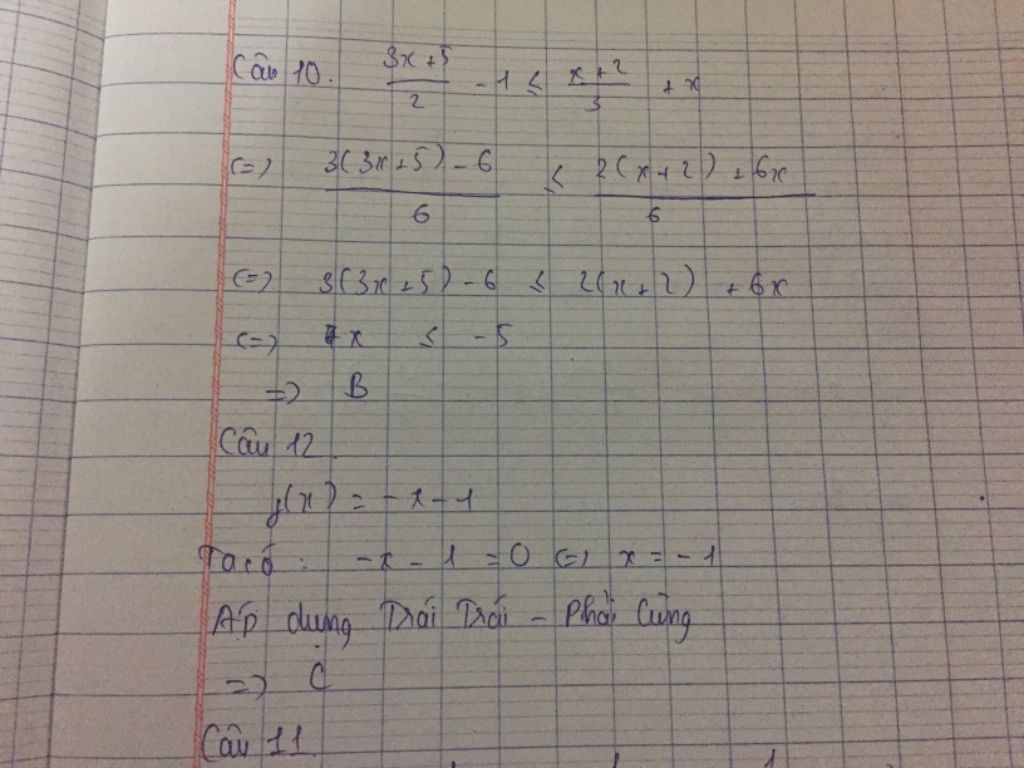 Câu 10. (3x+5)/2 - 1 ≤ (x+2)/3 + x
(=) (3(3x+5) - 6)/6 ≤ (2(x+2) + 6x)/6
(=) 3(3x+5) - 6 ≤ 2(x+2) + 6x
(=) x ≤ -5
=) B
Câu 12.
y(x) = -x - 1
Ta có : -x - 1 = 0 (=) x = -1
Áp dụng Trái Trái - Phải Cùng
=) C
Câu 11